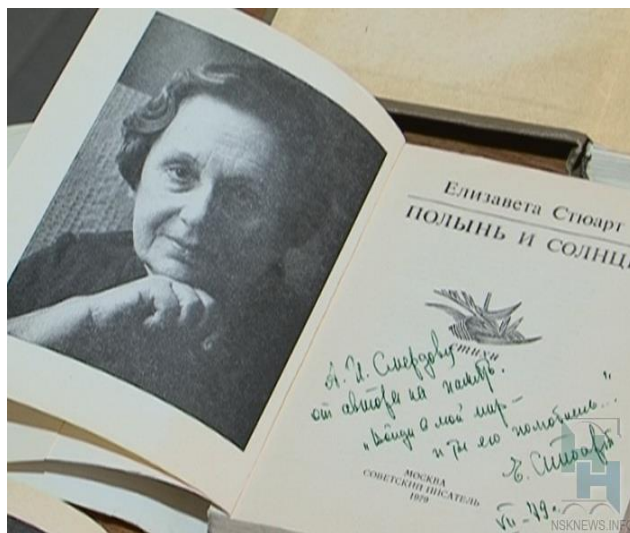 Елизавета Стюарт
ПОЛЫНЬ И СОЛНЦЕ
стихи
А. И. Смердову
от автора на память.
„Войди в мой мир –
и ты его полюбишь..."
Е. Стюарт
VII – 79 г.
МОСКВА
СОВЕТСКИЙ ПИСАТЕЛЬ
1979
NSKNEWS.INFO